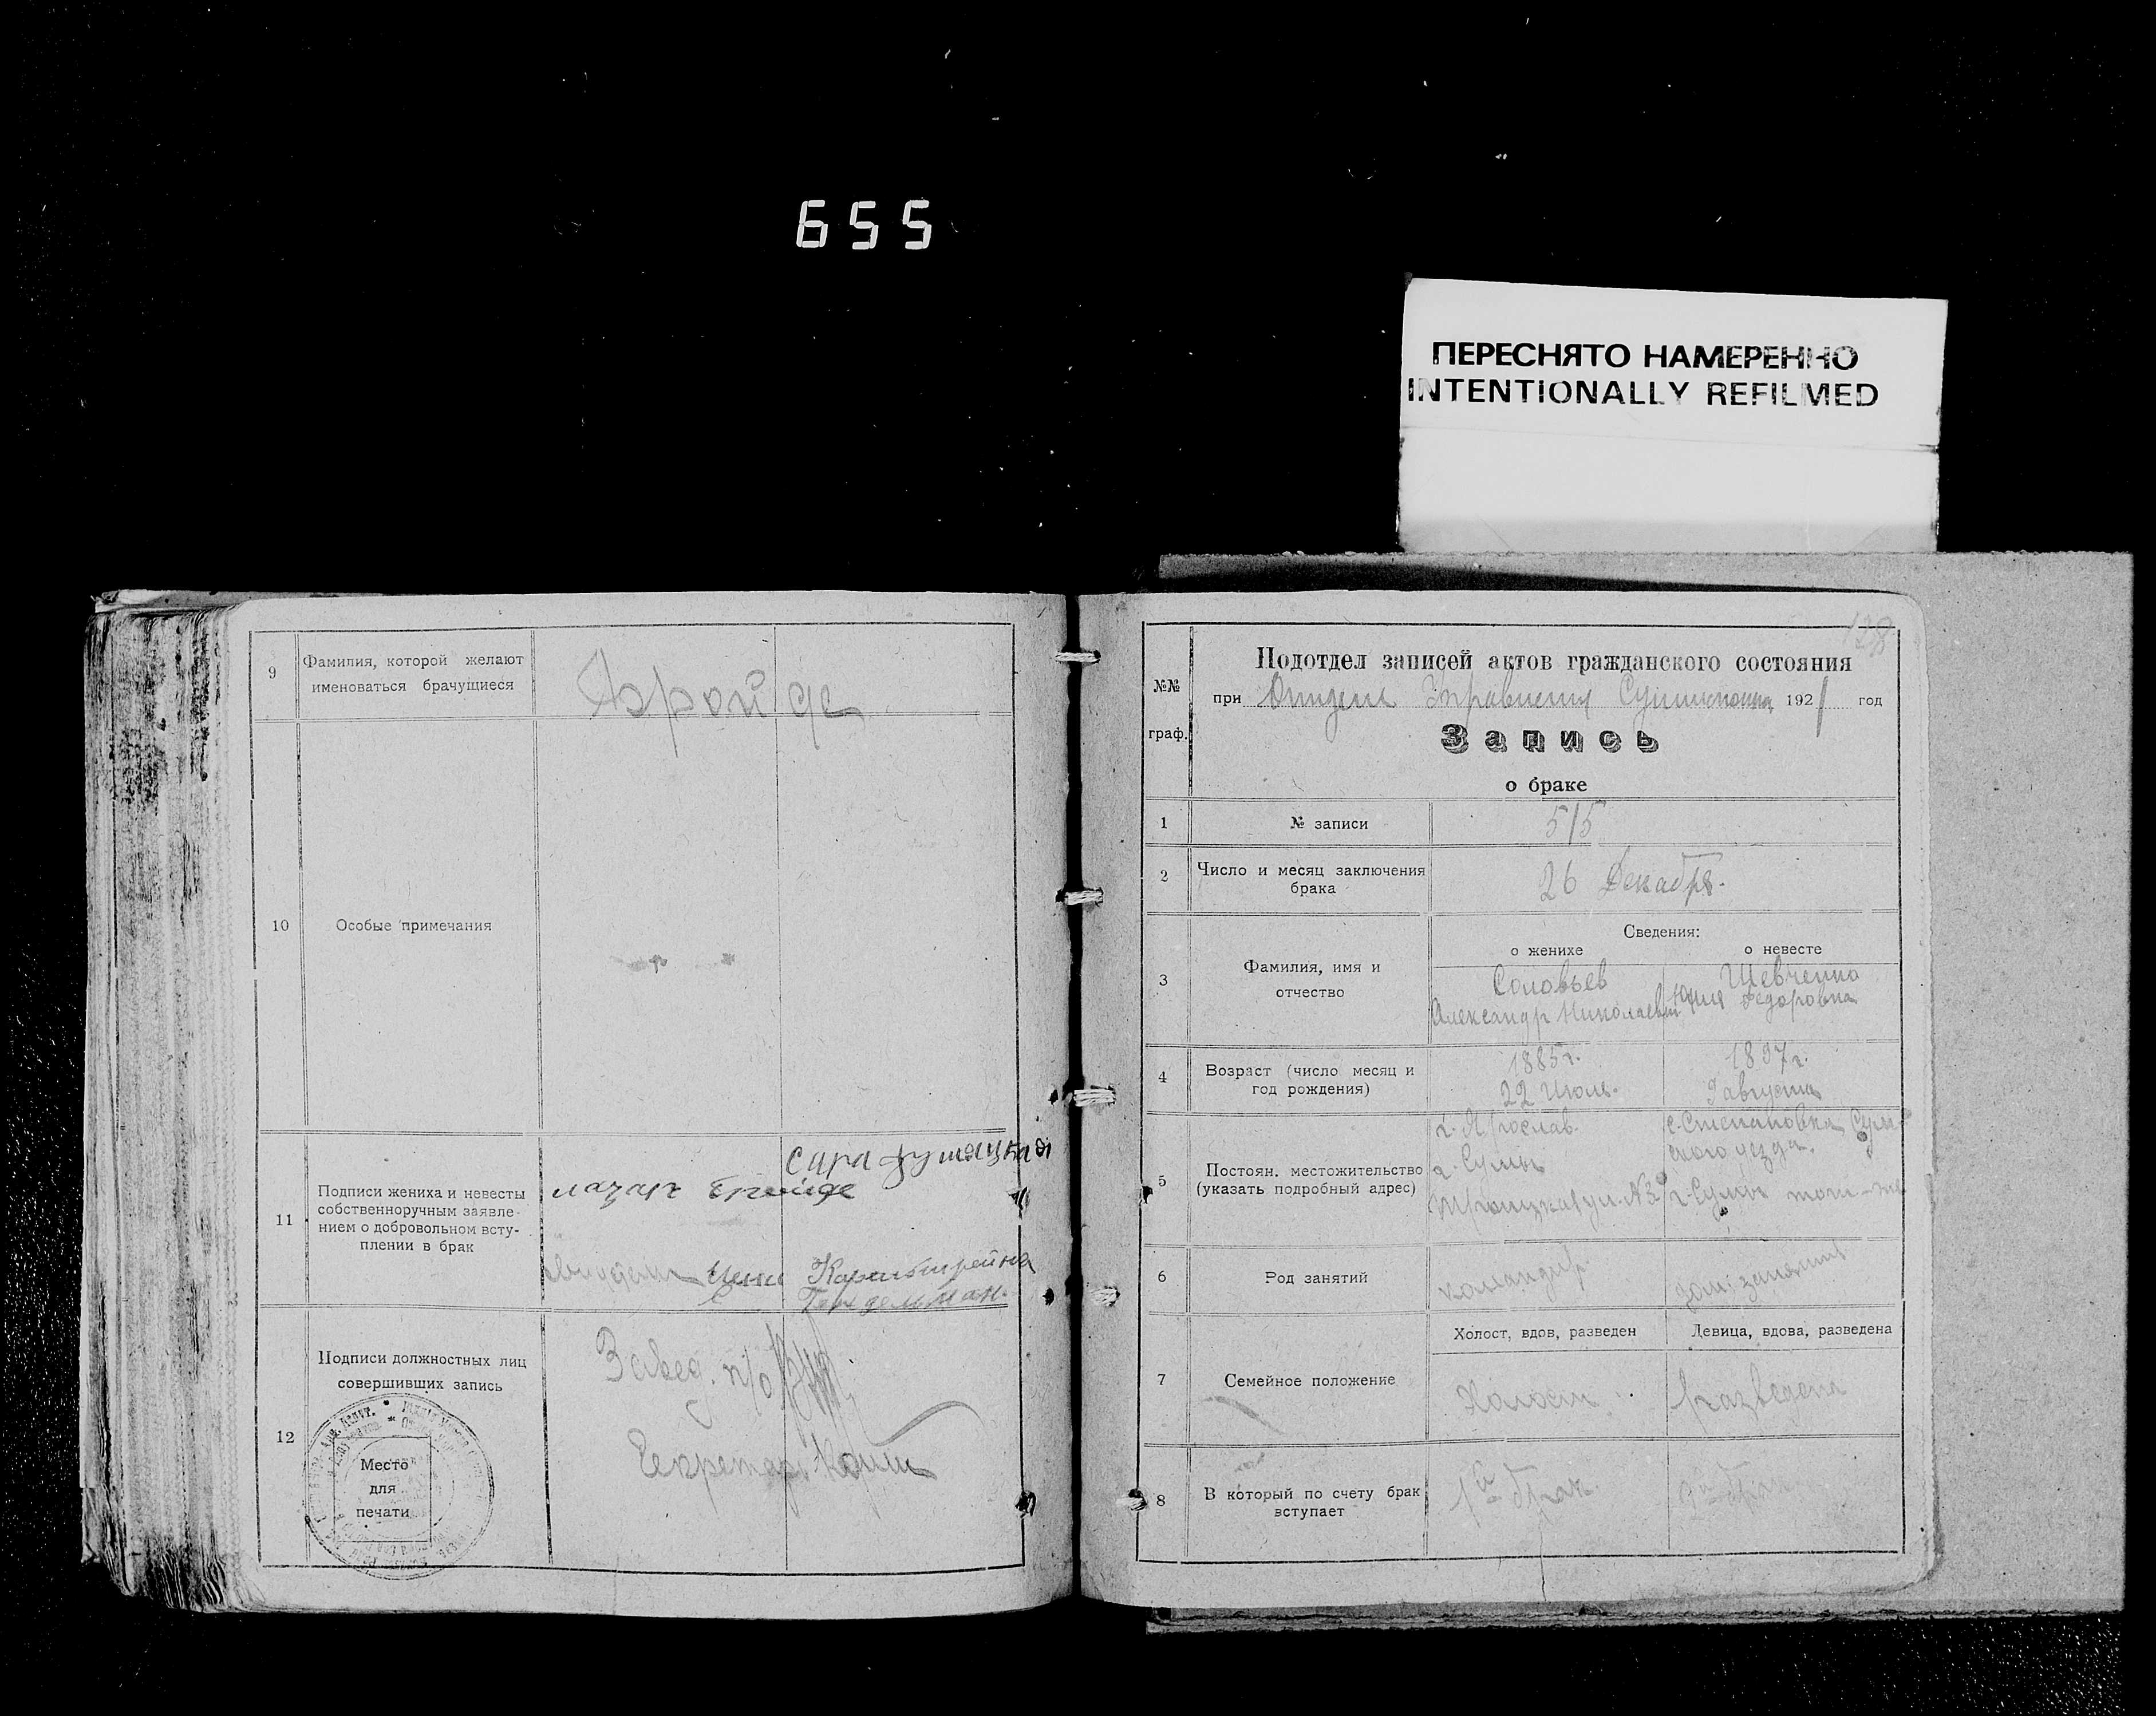 655
ПЕРЕСНЯТО НАМЕРЕННО
INTENTIONALLY REFILMED
9
Фамилия, которой желают
именоваться брачущиеся
10
Особые примечания
11
Подписи жениха и невесты
собственноручным заявле-
нием о добровольном всту-
плении в брак
Сара
лазарь
12
Подписи должностных лиц
совершивших запись
Завед. п/о
Секретарь
Место
для
печати
138
№№
граф.
Подотдел записей актов гражданского состояния
при Отделе Управления 1921 год
Запись
о браке
1
№ записи
515
2
Число и месяц заключения
брака
26 Декабря.
3
Фамилия, имя и
отчество
Сведения:
о женихе
о невесте
Соловьев
Александр Николаевич
Шевченко
Федоровна
4
Возраст (число месяц и
год рождения)
1885 г.
22 Июль.
1897 г.
августа
5
Постоян. местожительство
(указать подробный адрес)
г. Ярослав.
г. Сумы
с. Степановка, Сум-
ского уезда.
г. Сумы
6
Род занятий
командир
дом. занятия
7
Семейное положение
Холост, вдов, разведен
Девица, вдова, разведена
Холост
разведена
8
В который по счету брак
вступает
1й брак.
2й брак